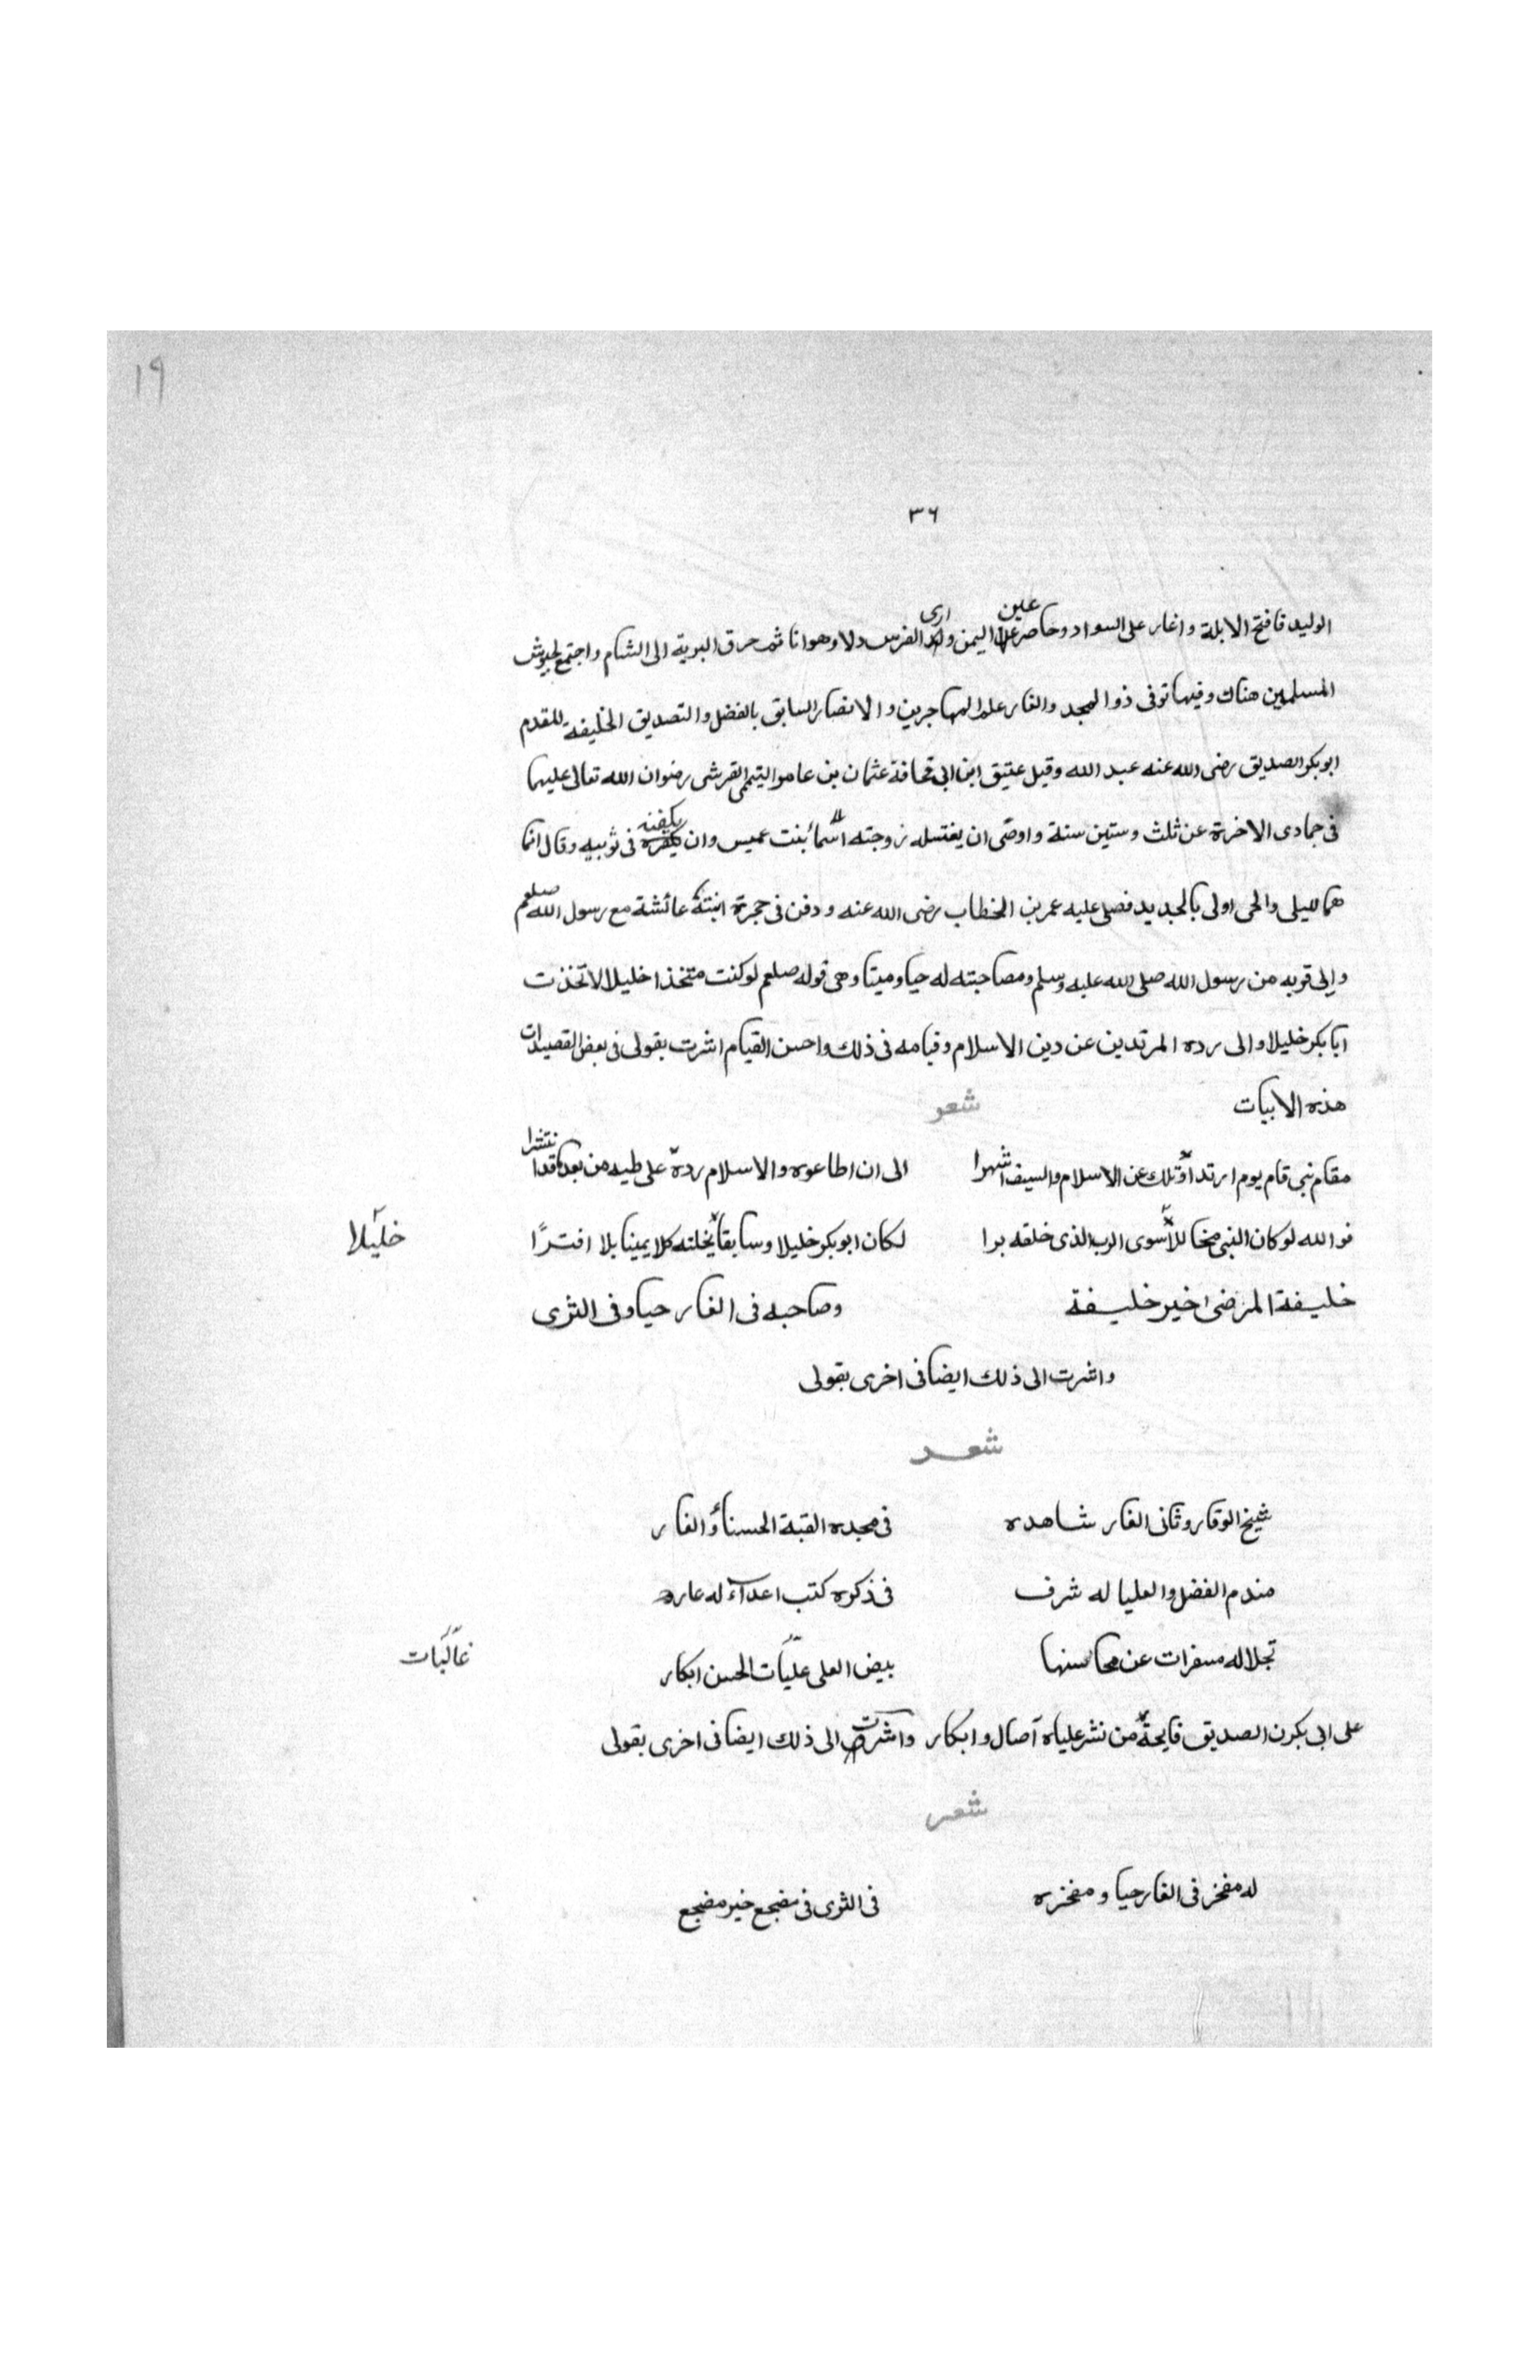 ١٩
٣٦
الوليد فافتح الابلة واغار على السواد وحاصر عين اليمن وارى الفرس ذلا وهوانا ثم حرق البرية الى الشام واجتمع لجيوش
المسلمين هناك وفيها توفى ذو المجد والغار علم المهاجرين والانصار السابق بالفضل والتصديق الخليفة للمقدم
ابوبكر الصديق رضى الله عنه عبد الله وقيل عتيق ابن ابى قحافة عثمان بن عامر التيمى القرشى رضوان الله تعالى عليهما
فى جمادى الاخرة عن ثلث وستين سنة واوصى ان يغتسله زوجته اسماء بنت عميس وان يكفنه فى ثوبيه وقال انما
هما لليلى والحى اولى بالجديد فصلى عليه عمر بن الخطاب رضى الله عنه ودفن فى حجرة ابنته عائشة مع رسول الله صلعم
والى قربه من رسول الله صلى الله عليه وسلم ومصاحبته له حيا وميتا وهى قوله صلعم لوكنت متخذا خليلا لاتخذت
ابابكر خليلا والى رده المرتدين عن دين الاسلام وقيامه فى ذلك واحسن القيام اشرت بقولى فى بعض القصيدات
هذه الابيات شعر
مقام نبى قام يوم ارتد اوّلك عن الاسلام والسيف اشهرا الى ان اطاعوه والاسلام ردّه على طيه من بعد ما قد انتشرا
فوالله لوكان النبى مخاللا سوى الرب الذى خلقه برا لكان ابوبكر خليلا وسابقا بخلته كلا يمينا بلا افترًا خليلا
خليفة المرضى اخير خليفة وصاحبه فى الغار حيا وفى الثرى
واشرت الى ذلك ايضا فى اخرى بقولى
شعر
شيخ الوقار وثانى الغار شاهده فى مجده القبة الحسناؤ الغار
مندم الفضل والعليا له شرف فى ذكره كتب اعداء له عار
تجلا له مسفرات عن محاسنها بيض العلى عليّات الحسن ابكار غاليات
على ابى بكرن الصديق فايحة من نشر علياه آصال وابكار واشرت الى ذلك ايضا فى اخرى بقولى
شعر
له مفخر فى الغار حيا ومفخره فى الثرى فى مضجع خير مضجع